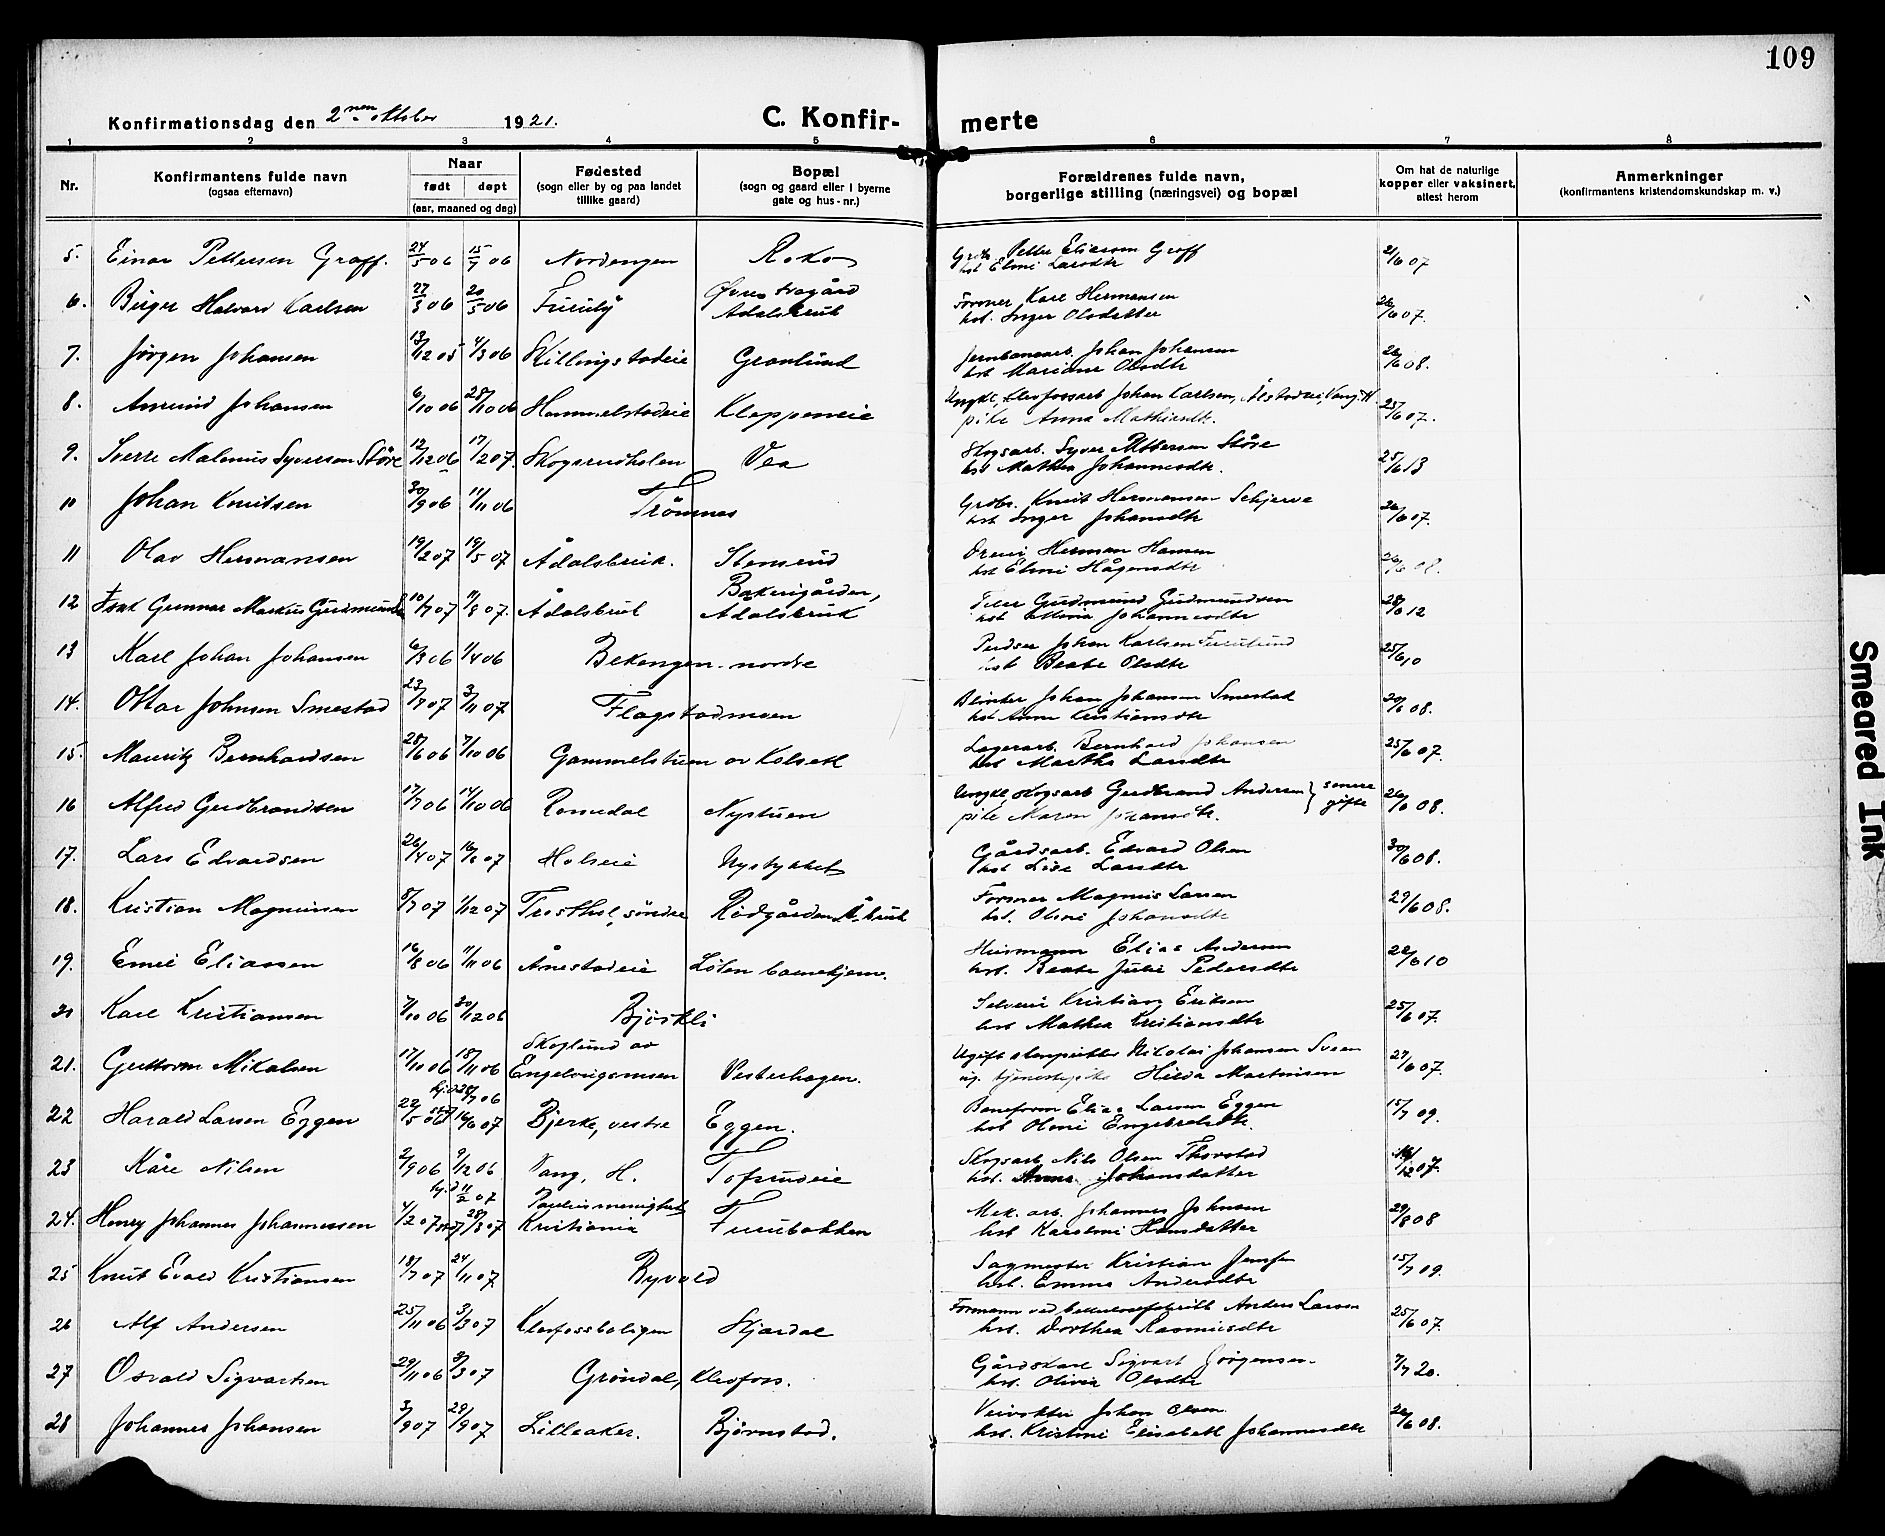 109
Konfirmationsdag den 2nen oktober 1921. C. Konfir- merte
1 2 3 4 5 6 7 8
Nr. Konfirmantens fulde navn (ogsaa efternavn) Naar født døpt (aar, maaned og dag) Fødested (sogn eller by og paa landet tillike gaard) Bopæl (sogn og gaard eller i byerne gate og hus-nr.) Forældrenes fulde navn, borgerlige stilling (næringsvei) og bopæl Om hat de naturlige kopper eller vaksinert, attest herom Anmerkninger (konfirmantens kristendomskundskap m. v.)
5. Einar Pettersen Graff. 24/5 06 15/7 06 Nordengen Roko Grdbr. Petter Eliassen Graff hst Elini Larsdtr 21/6 07
6. Birger Halvard Karlsen 27/3 06 20/5 06 Furuly Øvre Adalsbruk Former Karl Hermansen hst. Inger Olsdatter 26/6 07.
7. Jørgen Johansen 13/12 05 4/3 06 Skillingstadeie Granlund Jernbanearb. Johan Johansen hst Mariane Olsdtr 26/6 08.
8. Amund Johansen 6/10 06 28/10 06 Hommelstadeie Kleppeneie Ungkl, Klevfossarb Johan Karlsen, pike Anna Mathisdtr. 25/6 07.
9. Sverre Malenius Syversen Støre 12/12 06 17/2 07. Skogsrudholen Vea Skogsarb. Syver Støre hst Mathea Johannesdtr. 25/6 13
10 Johan Knutsen 30/9 06 11/11 06 Trømnes Grdbr. Knut Hermansen Schjerve hst Inger Johansdtr 26/6 07.
11 Olav Hermansen 19/2 07 19/5 07 Ådalsbruk. Stensrud Herman Hansen hst Elini Hågensdtr 26/6 08
12 Gunnar Markus Gudmunds 10/7 07 11/8 07. Ådalsbruk Bakerigården, Adalsbruk Gudmund Gudmundsen hst Johannesdtr 28/6 12
13 Karl Johan Johansen 6/3 06 1/4 06 Bekengen nordre Johan Karlsen Furulund hst Beate Olsdtr 25/6 10
14. Ottar Johnsen Smestad 23/7 07 3/11 07. Flagstadmoen Johan Johansen Smestad hst Anne Kristiansdtr 30/6 08.
15. Mauritz Bernhardsen 28/6 06 7/10 06 Gammelstuen av Kolsett Lagerarb. Bernhard Johansen hst Martha Larsdtr 25/6 07.
16 Alfred Gudbrandsen 17/7 06 14/10 06 Romedal Nystuen Ungkl, skogsarb Gudbrand Andersen pike Maren Johansdtr. } senere gifte 26/6 08.
17. Lars Edvardsen 26/4 07 16/6 07 Holseie Nystykket Gårdsarb. Edvard Olsen hst Lise Larsdtr 30/6 08.
18. Kristian Magnusen 8/7 07 1/12 07 Trosthol, søndre Rødgården Å.bruk Former Magnus Larsen hst. Olini Johansdtr 29/6 08.
19. Emil Eliassen 16/8 06 11/11 06 Ånestadeie Løten barnehjem. Husmann Elias Andersen hst. Beate Julie Pedersdtr 22/6 10
20 Karl Kristiansen 7/10 06 30/12 06 Bjørkli Selveier Kristian Eriksen hst Mathea Kristiansdtr 25/6 07.
21. Guttorm Mikalsen 17/10 06 18/11 06 Skoglund av Engelvigsmoen Vesterhagen. Ugift Nikolai Johansen Sveen ug. tjenestepike Hilda Martinsen 27/6 07.
22 Harald Larsen Eggen 22/5 06 hj.d 28/7 06 st.d 16/6 07 Bjerke, vestre Eggen. Baneform Elias Larsen Eggen hst Olini Engebretsdtr. 15/7 09.
23 Kåre Nilsen 2/9 06 9/12 06 Vang, H. Tofsrudeie Skogsarb. Nils Olsen Thorstad hst. Anna Johansdatter 12 07.
24. Henry Johannes Johannessen 4/2 07 hj.d 11/2 07 28/3 07 Paulus menighet Kristiania Furubakken Mek. arb. Johannes Johnsen hst. Karoline Hansdatter 29/8 08
25 Knut Evald Kristiansen 18/7 07 24/11 07 Byvold Sagmester Kristian Jensen hst. Emma Andersdtr 15/7 09.
26 Alf Andersen 25/11 06 3/3 07 Klevfossboligen Stjørdal Formann ved cellulosefabrikk Anders Larsen hst. Dorthea Rasmusdtr 25/6 07.
27 Osvald Sigvartsen 29/11 06 3/3 07 Grøndal, Klevfoss. Gårdskarl Sigvart Jørgensen hst. Olivia Olsdtr 7/7 20.
28 Johannes Johansen 3/9 07 29/9 07 Lilleaker. Bjørnstad. Veivokter Johan Olsen hst. Kristine Elisabeth Johannesdtr 26/6 08.
Smeared Ink